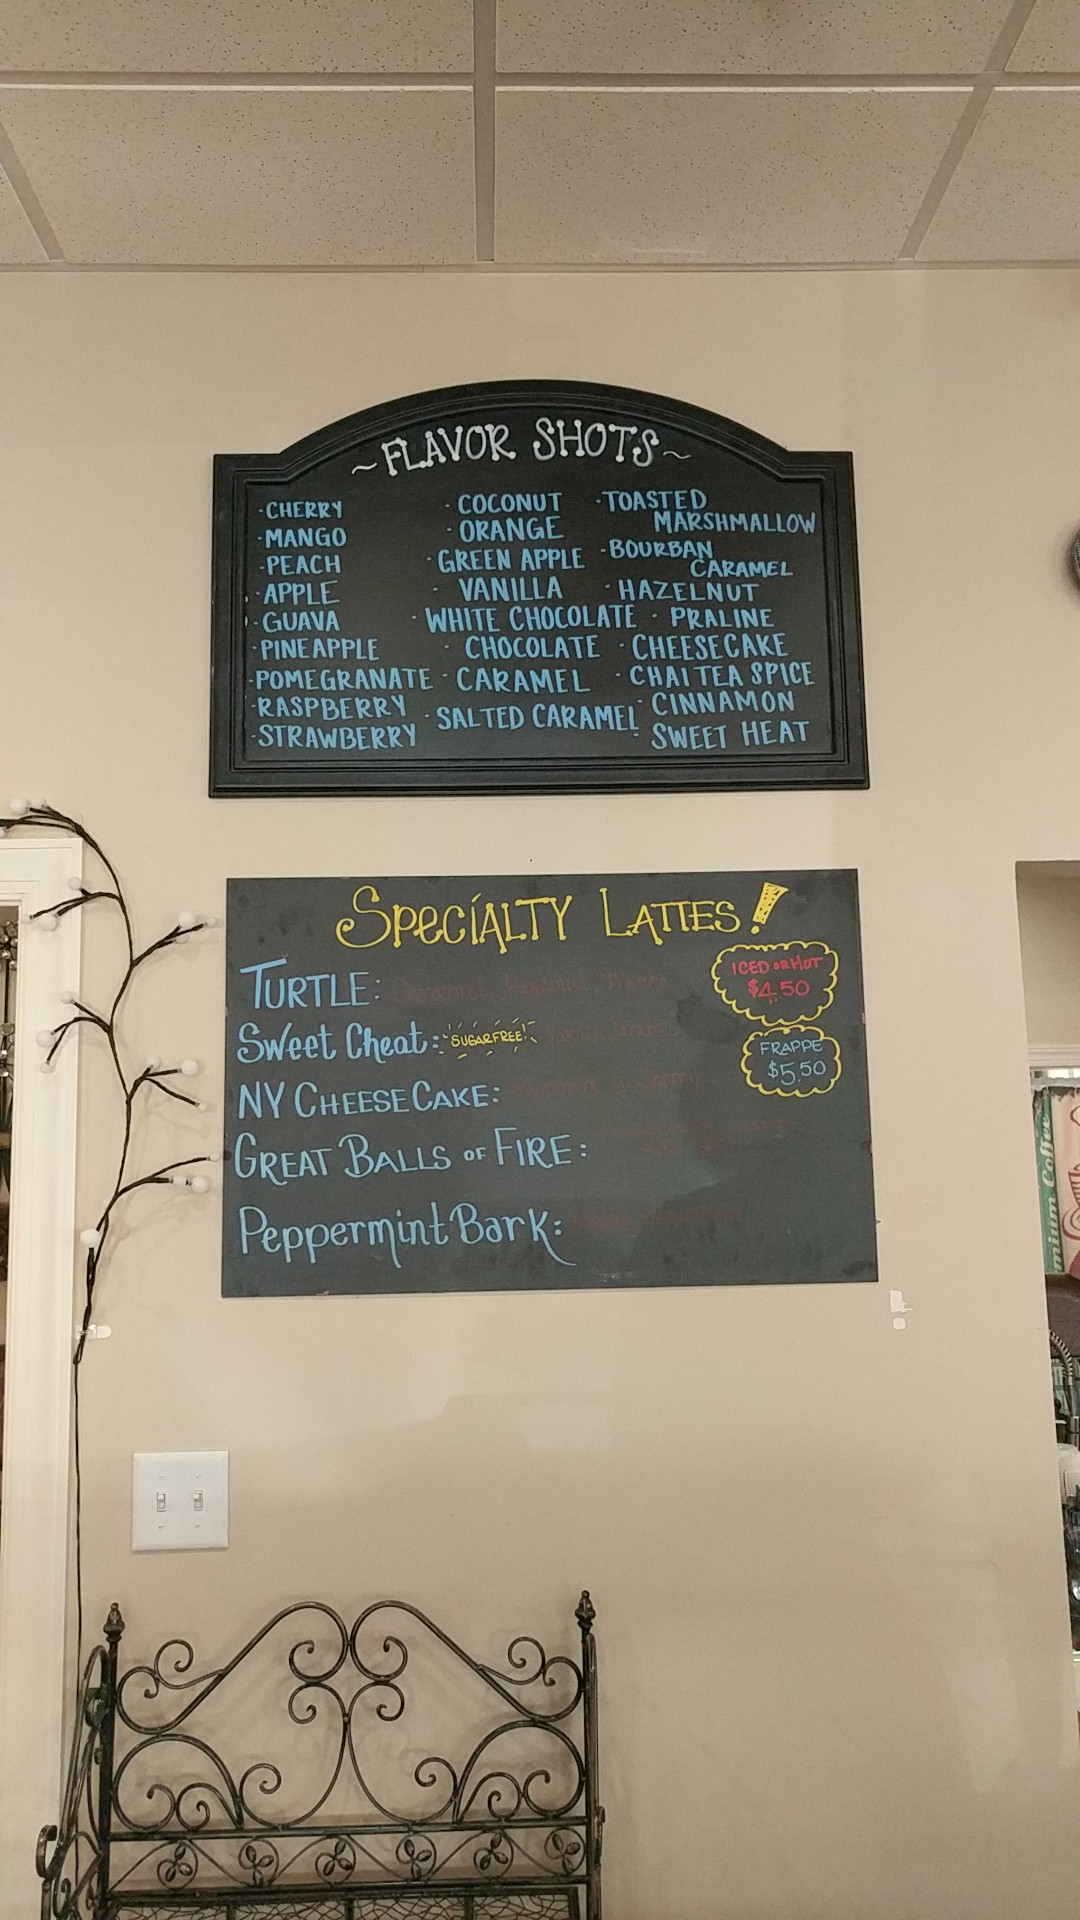 ~FLAVOR SHOTS~
·CHERRY
·MANGO
·PEACH
·APPLE
·GUAVA
·PINEAPPLE
·POMEGRANATE
·RASPBERRY
·STRAWBERRY
·COCONUT
·ORANGE
·GREEN APPLE
·VANILLA
·WHITE CHOCOLATE
·CHOCOLATE
·CARAMEL
·SALTED CARAMEL
·TOASTED
MARSHMALLOW
·BOURBAN
CARAMEL
·HAZELNUT
·PRALINE
·CHEESECAKE
·CHAI TEA SPICE
·CINNAMON
·SWEET HEAT
SPECIALTY LATTES!
TURTLE:
Sweet Cheat: SUGARFREE!
NY CHEESECAKE:
GREAT BALLS OF FIRE:
Peppermint Bark:
ICED OR HOT
$4.50
FRAPPE
$5.50
Coffee